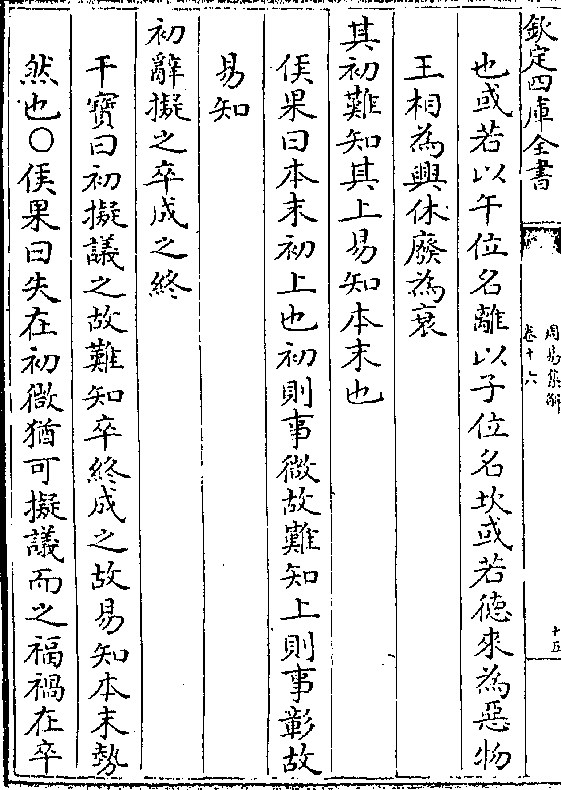 欽定四庫全書
周易集解
卷十六
十五
也或若以午位名離以子位名坎或若德來為惡物
王相為興休廢為衰
其初難知其上易知本末也
侯果曰本末初上也初則事微故難知上則事彰故
易知
初辭擬之卒成之終
干寶曰初擬議之故難知卒終成之故易知本末勢
然也○侯果曰失在初微猶可擬議而之福禍在卒